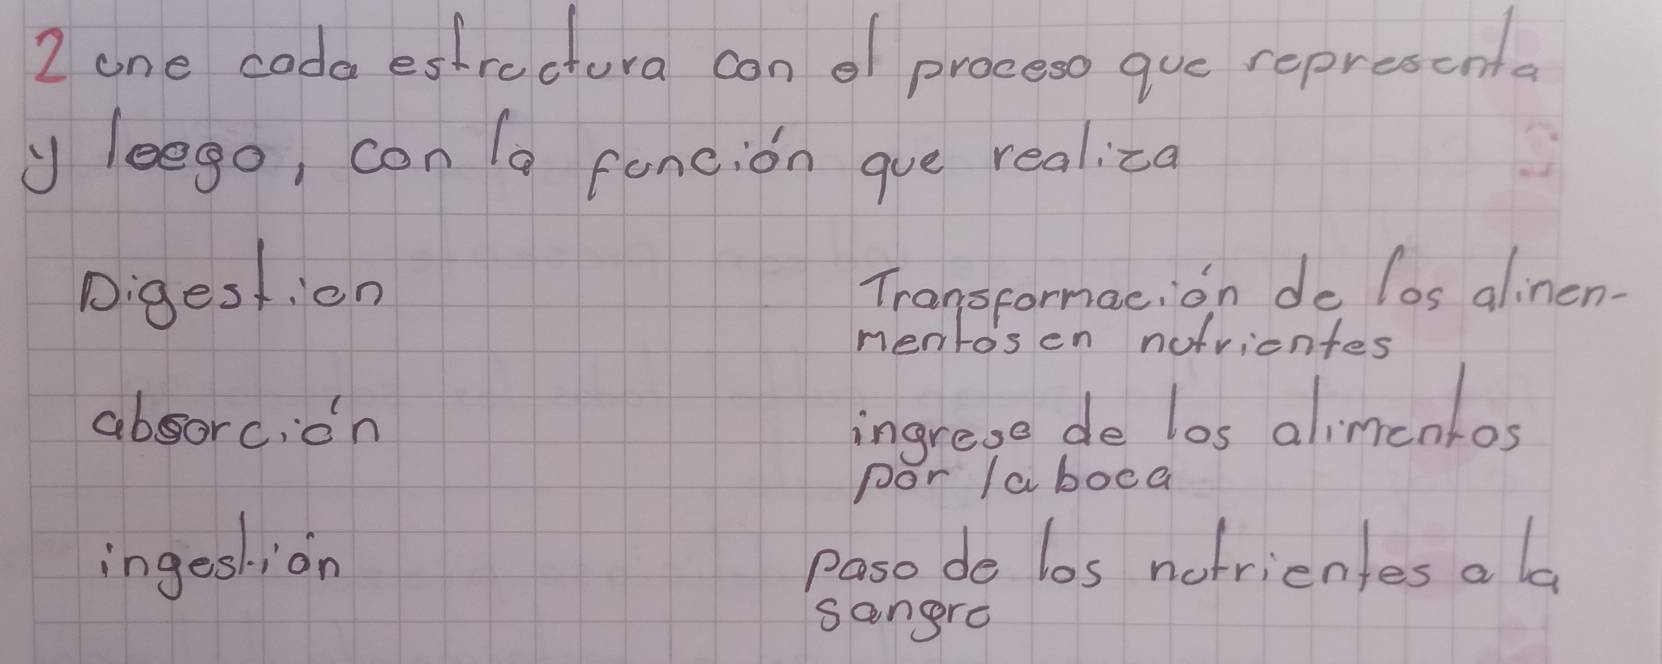 2 une cada estructura con el proceso que representa
y luego, con la función que realiza
Digestion
Transformación de los alinen-
mentos en nutrientes
absorción
ingreso de los alimentos
por la boca
ingestión
paso de los nutrientes a la
sangre